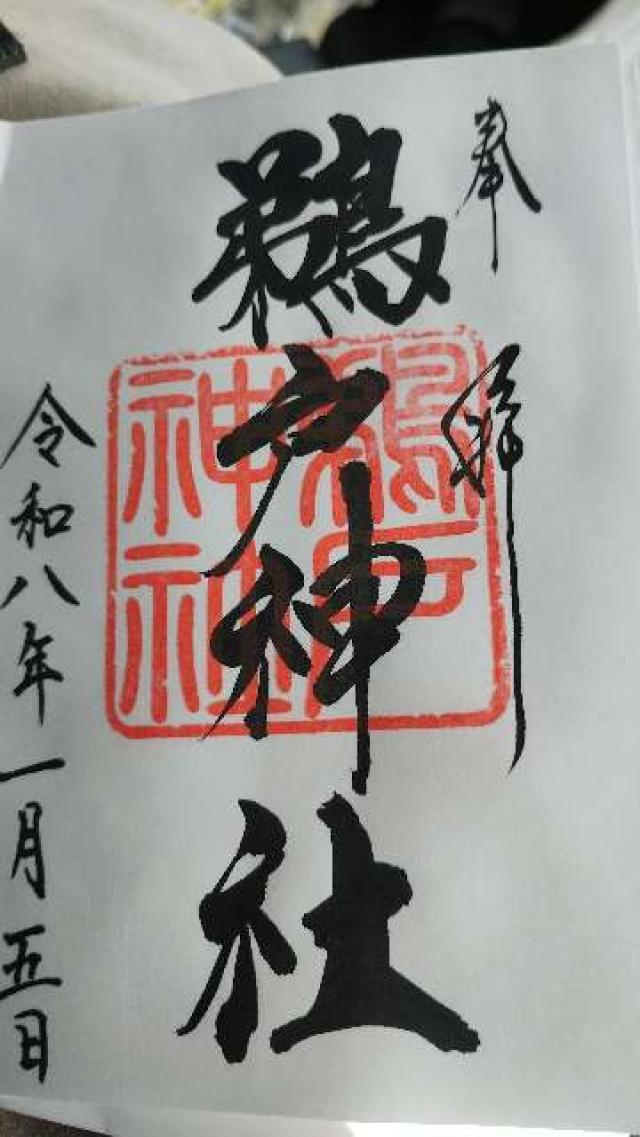 奉拝
鵜戸神社
鵜戸
神社
令和八年一月五日